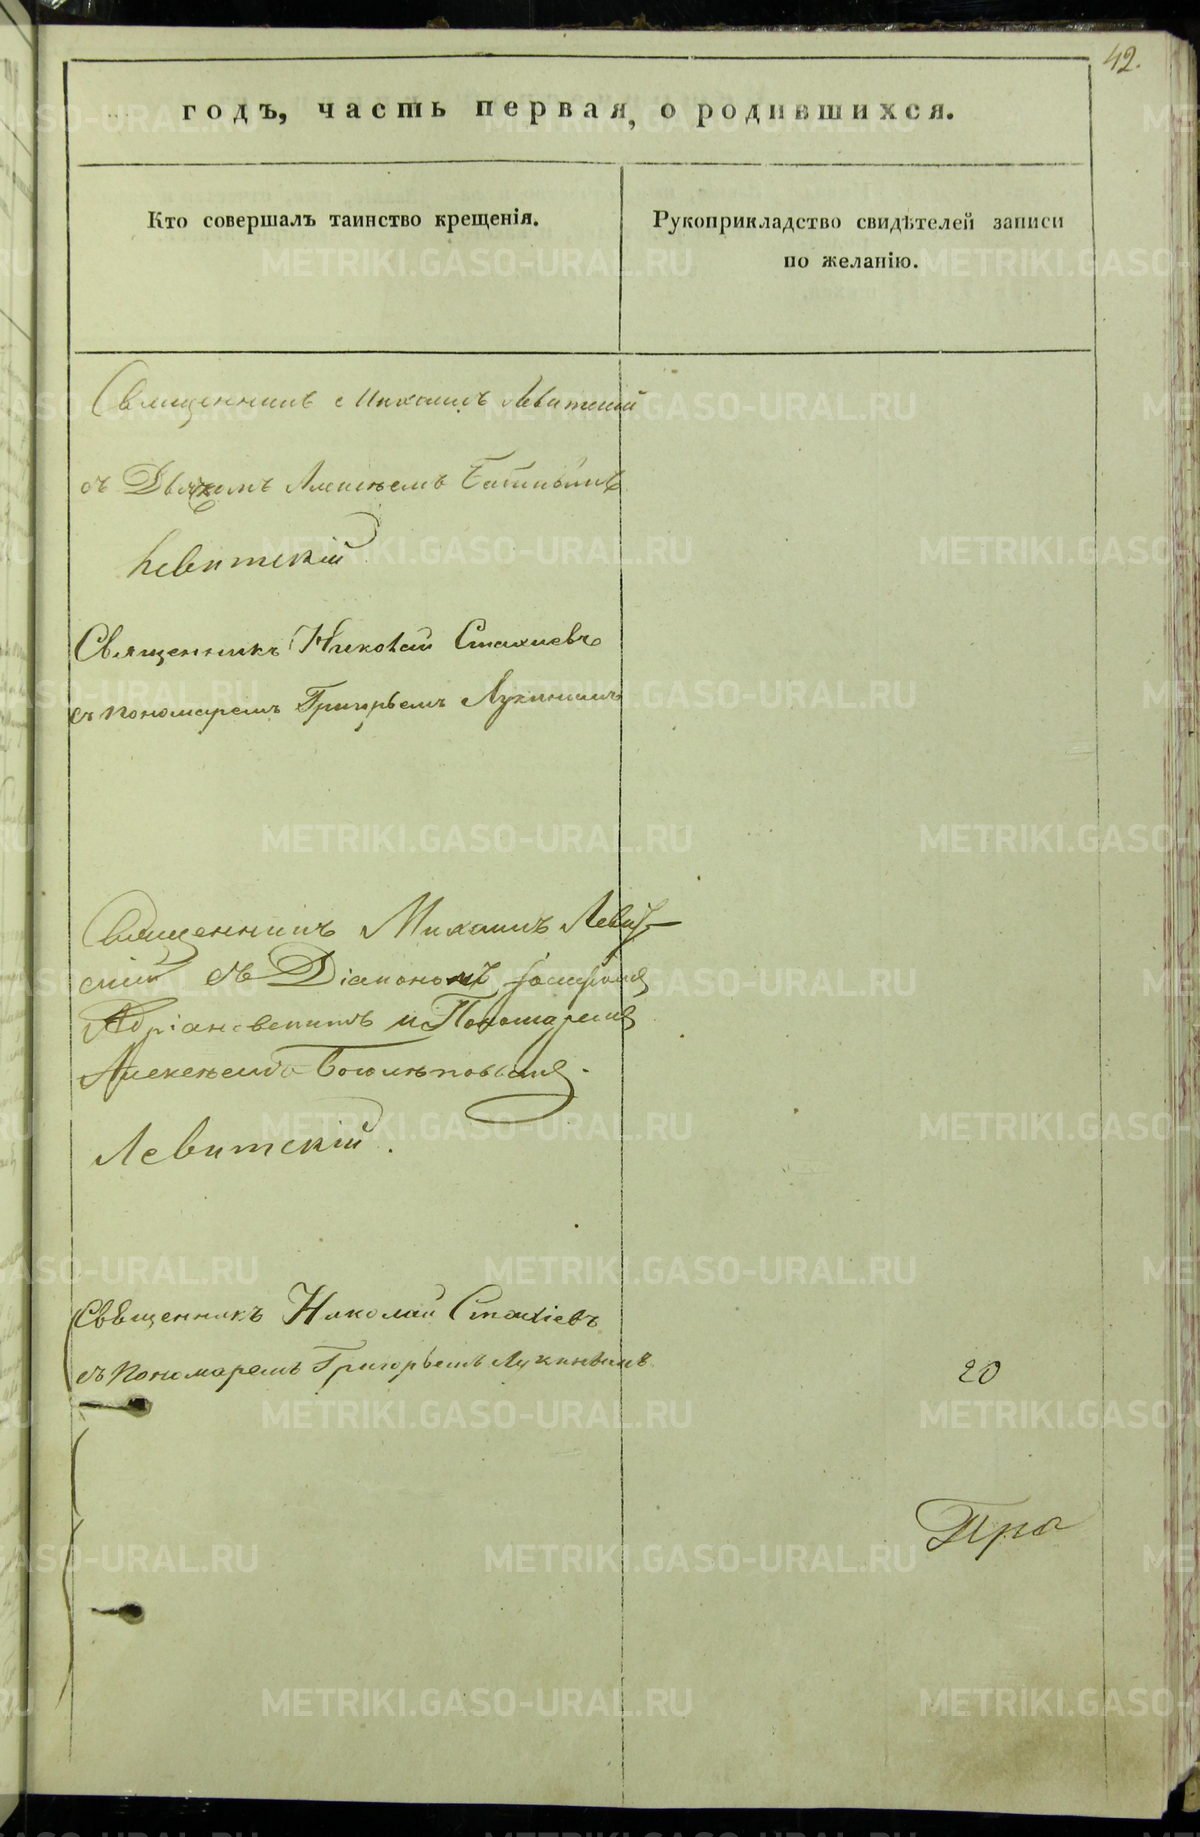 42.
годъ, часть первая, о родившихся.
Кто совершалъ таинство крещенія.
Рукоприкладство свидѣтелей записи
по желанію.
Священникъ Михаилъ Левитскій
съ Алексѣемъ
Левитскій
Священникъ Николай Стахиевъ
съ пономаремъ Григорьемъ Лукинымъ
Священникъ Михаилъ Левит-
скій съ Діакономъ
и Пономаремъ
Алексѣемъ Боголѣповымъ.
Левитскій.
Священникъ Николай Стахіевъ
съ Пономаремъ Григорьемъ Лукинымъ
20
Пра
METRIKI.GASO-URAL.RU